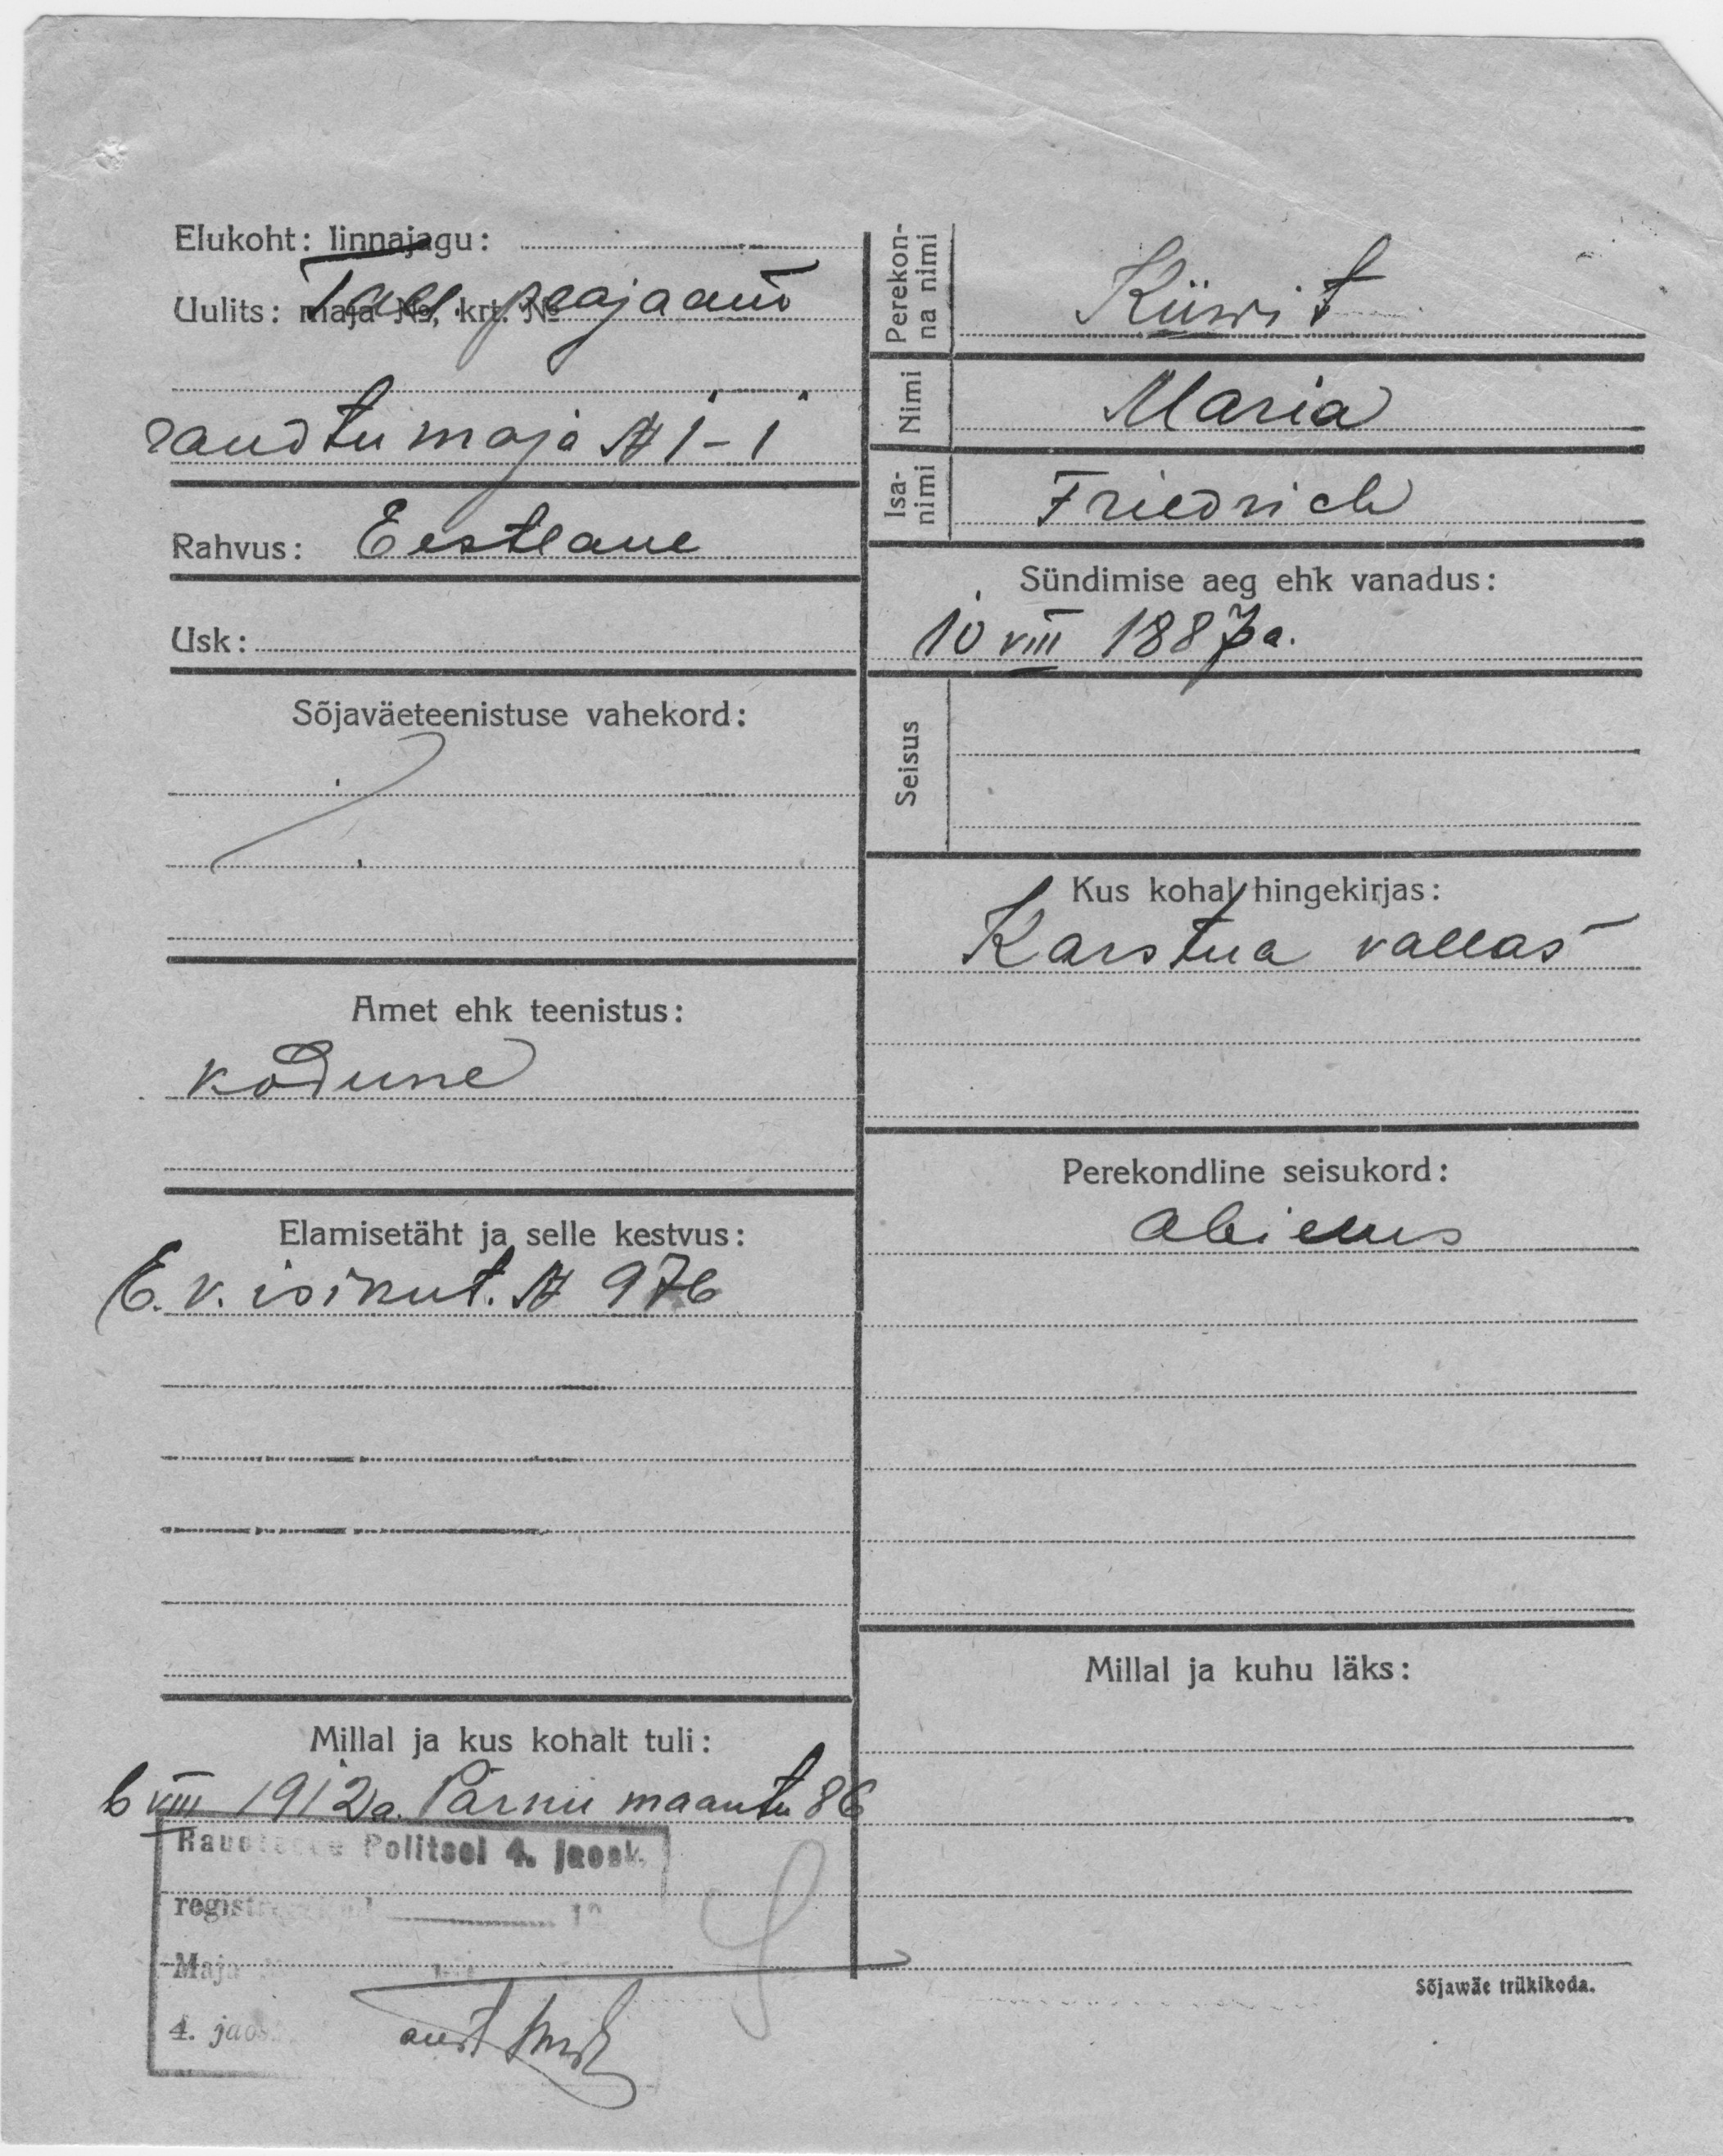 Elukoht: linnajagu:
Uulits: maja №, krt. №
Tall. peajaam
raudtu maja № 1-1
Rahvus: Eestlane
Usk:
Sõjaväeteenistuse vahekord:
Amet ehk teenistus:
kodune
Elamisetäht ja selle kestvus:
E. v. isikut. № 976
Millal ja kus kohalt tuli:
6 VIII 1912 a. Pärnu maantu 86
Raudteede Politsei 4. jaosk.
4. jaosk.
Perekonna nimi
Küwit
Nimi
Maria
Isanimi
Friedrich
Sündimise aeg ehk vanadus:
10 VIII 1887 a.
Seisus
Kus kohal hingekirjas:
Karstna vallas
Perekondline seisukord:
abielus
Millal ja kuhu läks:
Sõjawäe trükikoda.